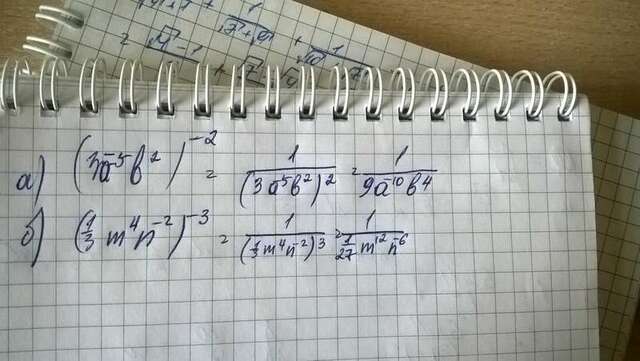 а) (3a⁻⁵b²)⁻² = 1/(3a⁻⁵b²)² = 1/9a⁻¹⁰b⁴
б) (1/3 m⁴n⁻²)⁻³ = 1/(1/3 m⁴n⁻²)³ = 1/(1/27 m¹²n⁻⁶)